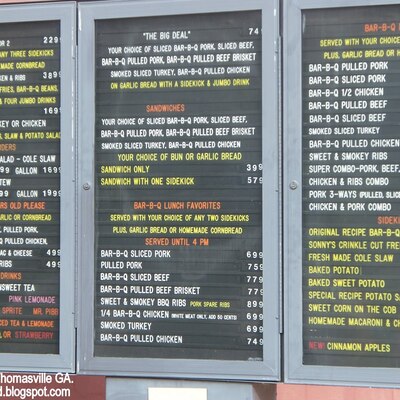 OR 2 2299
ANY THREE SIDEKICKS
HOMEMADE CORNBREAD
CKEN & RIBS 3899
FRIES, BAR-B-Q BEANS,
& FOUR JUMBO DRINKS
1699
KEY OR CHICKEN
S, SLAW & POTATO SALAD
ORDERS
SALAD - COLE SLAW
899 GALLON 1699
STEW
99 GALLON 1999
EARS OLD PLEASE
GARLIC OR CORNBREAD
PULLED PORK,
PULLED CHICKEN,
MAC & CHEESE 499
ICED 499
DRINKS
UNSWEET TEA
PINK LEMONADE
SPRITE MR. PIBB
ICED TEA & LEMONADE
OR STRAWBERRY
"THE BIG DEAL" 749
YOUR CHOICE OF SLICED BAR-B-Q PORK, SLICED BEEF,
BAR-B-Q PULLED PORK, BAR-B-Q PULLED BEEF BRISKET
SMOKED SLICED TURKEY, BAR-B-Q PULLED CHICKEN
ON GARLIC BREAD WITH A SIDEKICK & JUMBO DRINK
SANDWICHES
YOUR CHOICE OF SLICED BAR-B-Q PORK, SLICED BEEF,
BAR-B-Q PULLED PORK, BAR-B-Q PULLED BEEF BRISKET
SMOKED SLICED TURKEY, BAR-B-Q PULLED CHICKEN
YOUR CHOICE OF BUN OR GARLIC BREAD
SANDWICH ONLY 399
SANDWICH WITH ONE SIDEKICK 579
BAR-B-Q LUNCH FAVORITES
SERVED WITH YOUR CHOICE OF ANY TWO SIDEKICKS
PLUS, GARLIC BREAD or HOMEMADE CORNBREAD
SERVED UNTIL 4 PM
BAR-B-Q SLICED PORK 699
PULLED PORK 759
BAR-B-Q SLICED BEEF 779
BAR-B-Q PULLED BEEF BRISKET 779
SWEET & SMOKEY BBQ RIBS PORK SPARE RIBS 899
1/4 BAR-B-Q CHICKEN (WHITE MEAT ONLY, ADD 50 CENTS) 699
SMOKED TURKEY 699
BAR-B-Q PULLED CHICKEN 749
BAR-B-Q
SERVED WITH YOUR CHOICE
PLUS, GARLIC BREAD or HO
BAR-B-Q PULLED PORK
BAR-B-Q SLICED PORK
BAR-B-Q 1/2 CHICKEN
BAR-B-Q PULLED BEEF
BAR-B-Q SLICED BEEF
SMOKED SLICED TURKEY
BAR-B-Q PULLED CHICKEN
SWEET & SMOKEY RIBS
SUPER COMBO-PORK, BEEF,
CHICKEN & RIB COMBO
PORK 3-WAYS (PULLED, SLICED
CHICKEN & PORK COMBO
SIDEKI
ORIGINAL RECIPE BAR-B-Q
SONNY'S CRINKLE CUT FRE
FRESH MADE COLE SLAW
BAKED POTATO
BAKED SWEET POTATO
SPECIAL RECIPE POTATO S
SWEET CORN ON THE COB
HOMEMADE MACARONI & CH
NEW! CINNAMON APPLES
Thomasville GA.
d.blogspot.com